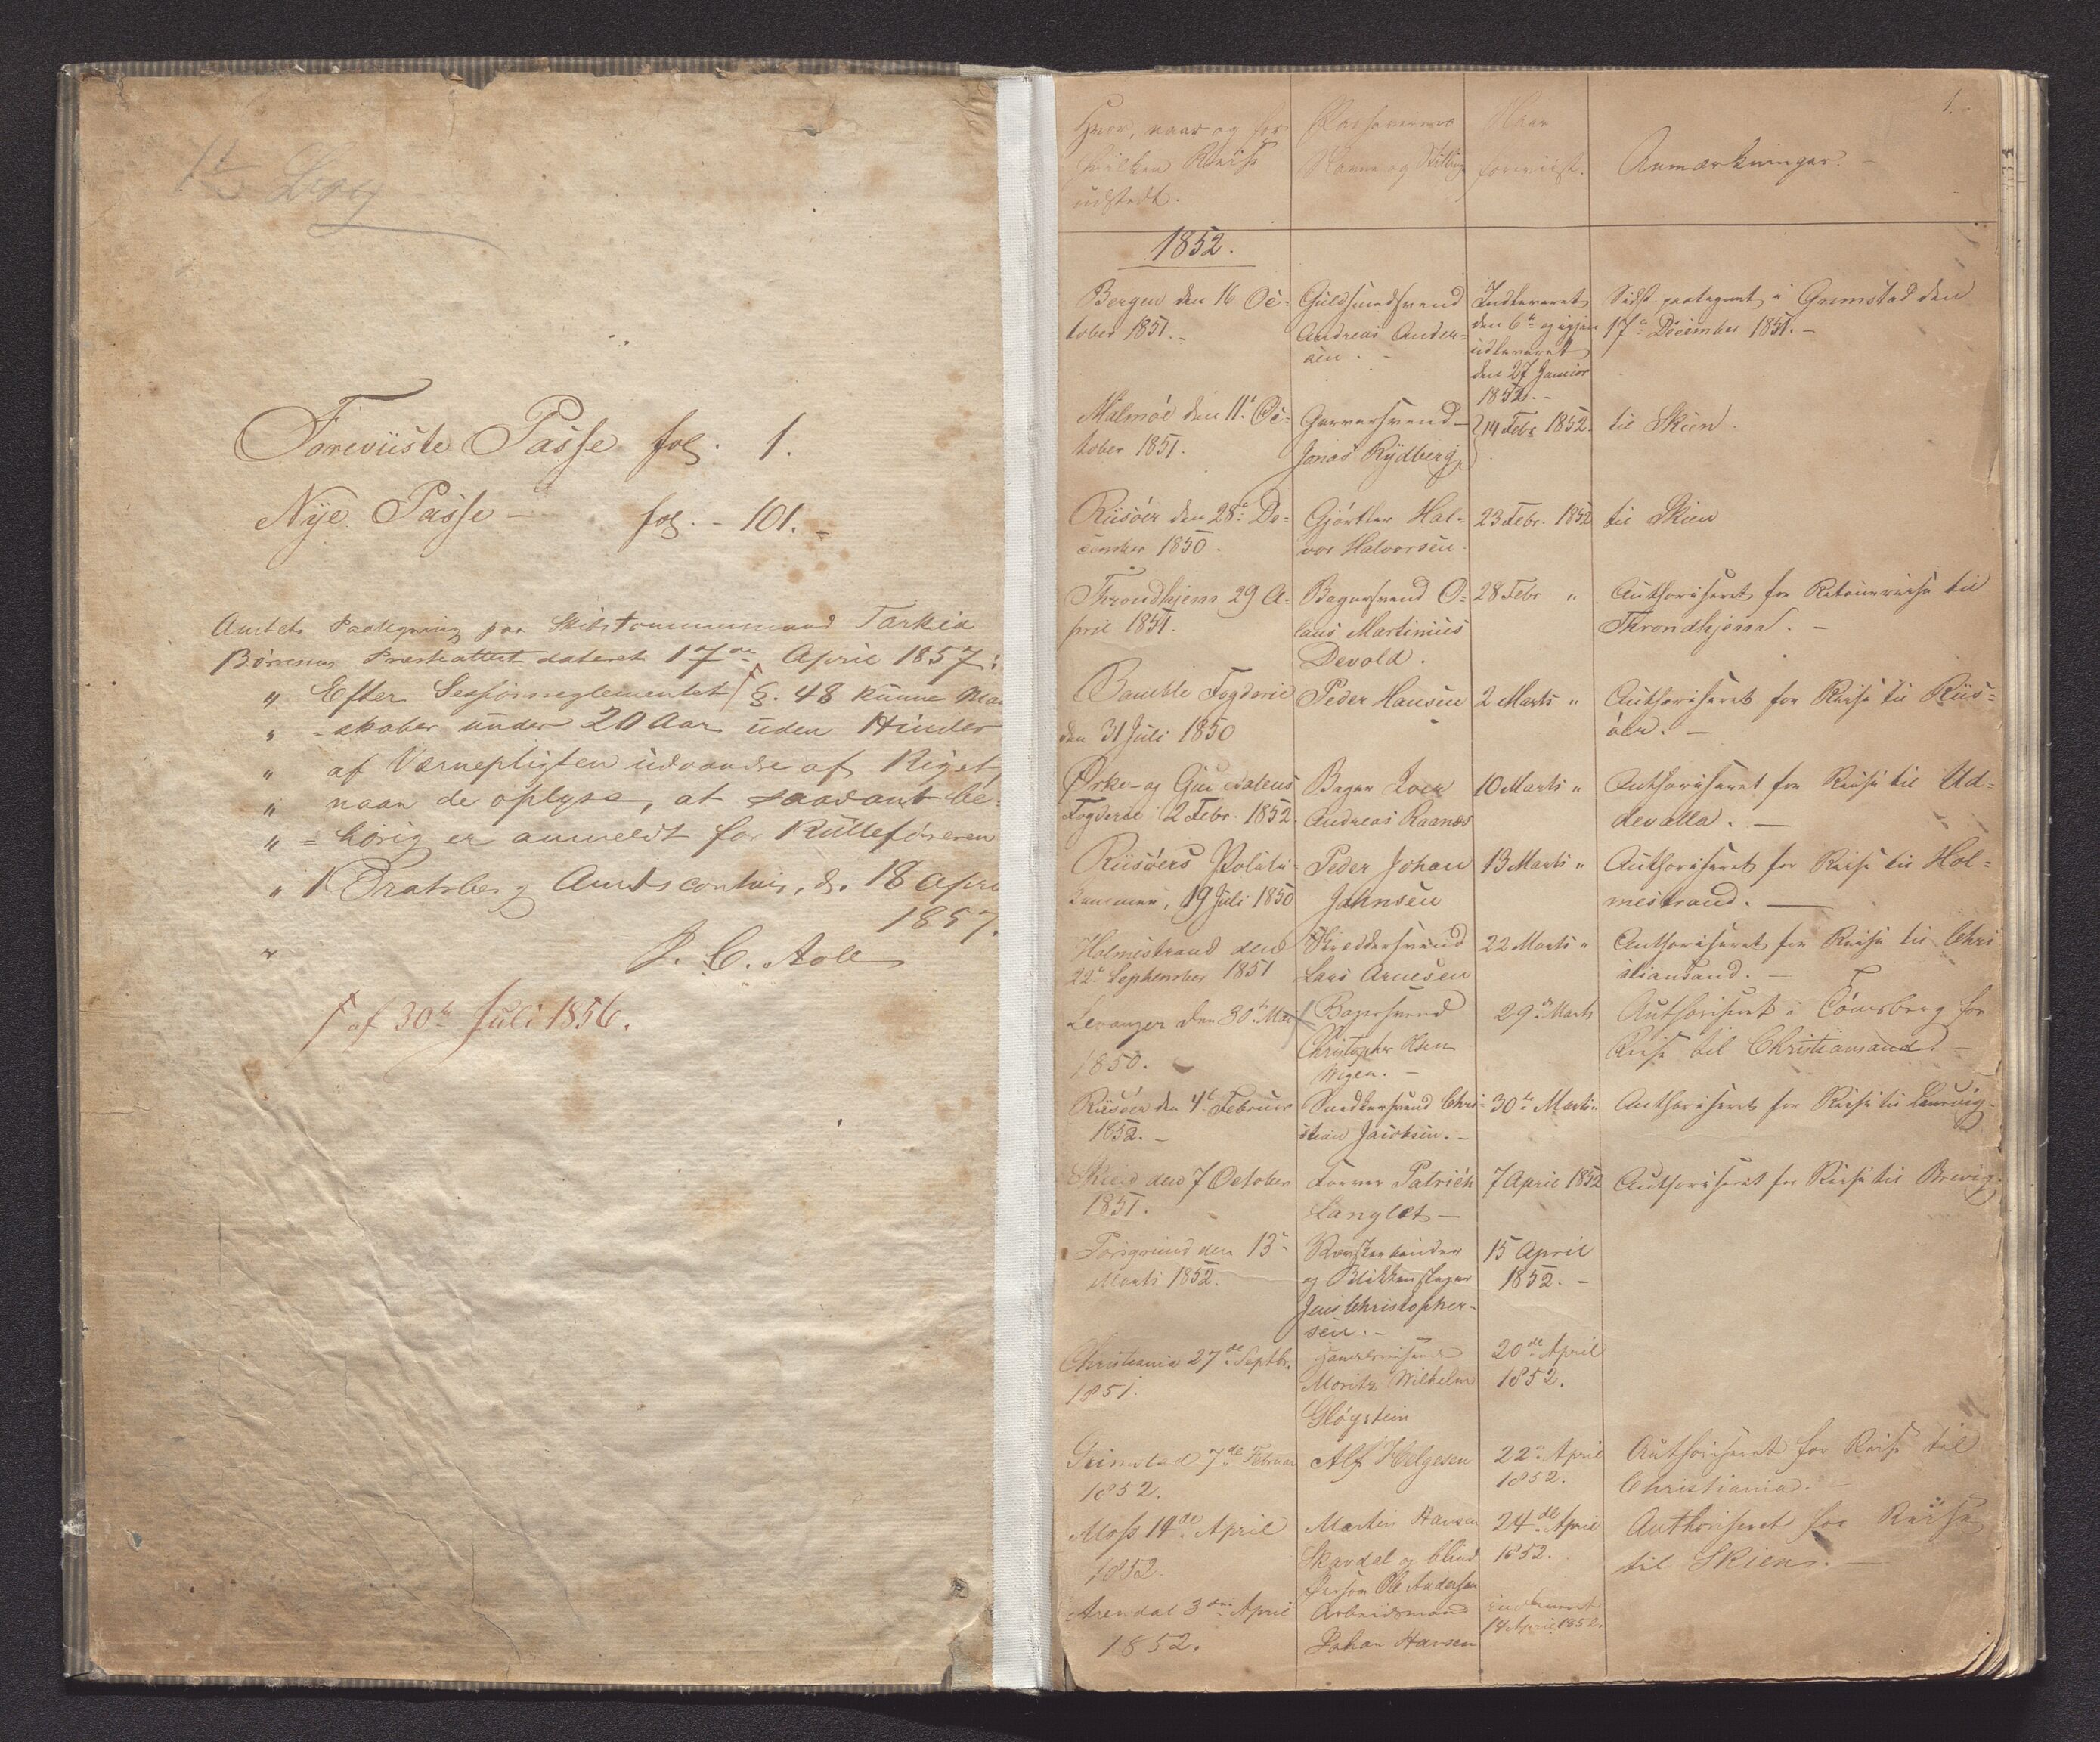 Foreviiste Passe fol. 1.
Nÿe Passe – fol. - 101. -
Amtets Paategning paa Skibstømmermand Tarkild
Børresens Præsteattest dateret 17de April 1857:
" Efter Sessionsreglementet § 48 kunne Mand
" - skaber under 20 Aar uden Hinder
" af Værnepligten udvandre af Riget,
" naar de oplyse, at saadant be-
" = hørig er anmeldt for Rulleføreren
" Bratsberg Amtscontoir, d. 18 April
1857.
" J. C. Aall
af 30te Juli 1856.
1.
Hvor, naar og for
hvilken Reise
udstedt.
Navn og Stilling
Naar
foreviist.
Anmærkninger. –
1852.
Bergen den 16 Oc-
tober 1851. -
Guldsmedsvend
Andreas Ander-
sen. -
Indleveret
den 6te og igjen
udleveret
den 27 Januar
1852. -
Sidst paategnet i Grimstad den
17de December 1851. –
Malmöe den 11te Oc-
tober 1851.
Garversvend
Jonas Rÿdberg
14 Febr 1852.
til Skien.
Riisöer den 28de De-
cember 1850.
Gjörtler Hal-
vor Halvorsen.
23 Febr. 1852
til Skien
Throndhjem 29 A-
pril 1851.
Bagersvend O-
laus Martinius
Devold.
28 Febr "
Authoriseret for Retourreise til
Throndhjem. –
Bamble Fogderie
den 31 Juli 1850
Peder Hansen
2 Marts "
Authoriseret for Reise til Riis-
öer. –
Örke- og Guldalens
Fogderie 2 Febr. 1852.
Bager
Andreas Raanæs
10 Marts "
Authoriseret for Reise til Ud-
devalla. –
Riisöers Politi-
kammer, 19 Juli 1850
Peder Johan
Jahnsen
13 Marts "
Authoriseret for Reise til Hol-
mestrand. –
Holmestrand den
22de September 1851
Skræddersvend
Lars Arnesen
22 Marts "
Authoriseret for Reise til Chri
stiansand. –
Levanger den 30te Mai
1850.
Bagersvend
Christopher Olsen
Wigen. –
29de Marts
Authoriseret i Tönsberg for
Reise til Christiansand. –
Riisöer den 4de Februar
1852. –
Snedkersvend Chri-
stian Jacobsen. –
30te Marts "
Authoriseret for Reise til Laurvig.
Skien den 7 October
1851.
Farver Patrich
Langlet –
7 April 1852
Authoriseret for Reise til Brevig.
Porsgrund den 13de
Marts 1852.
og Blikkenslager
Jens Christopher-
sen. –
15 April
1852. –
Christiania 27de Septbr.
1851.
Handelsreisende
Moritz Wilhelm
Glöystein
20de April
1852.
Grimstad 7de Februar
1852.
Alf Helgesen
22de April
1852.
Authoriseret for Reise til
Christiania. –
Moss 14de April
1852.
Martin Hansen
Skavdal og blind
Person Ole Andersen
24de April
1852.
Authoriseret for Reise
til Skien. –
Arendal 3die April
1852.
Arbeidsmand
Johan Hansen
Indleveret
14 April 1852.